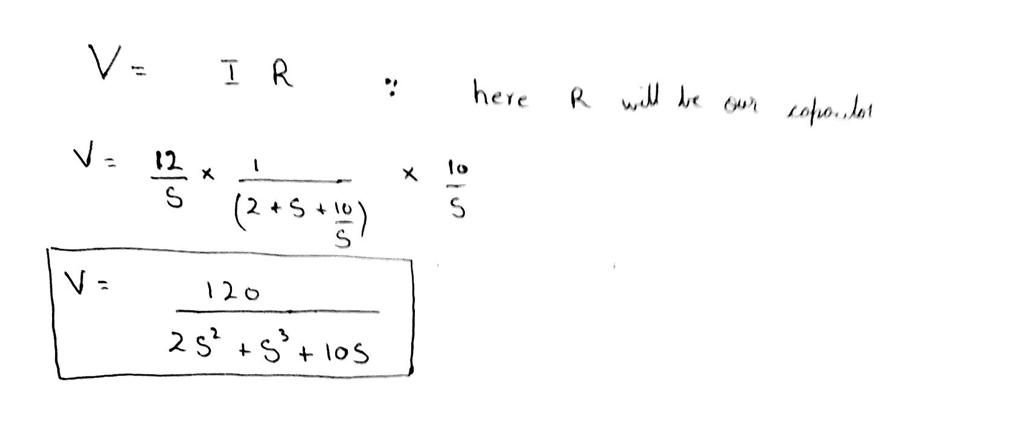 V = I R ∵ here R will be our
V = 12/S × 1/(2 + S + 10/S) × 10/S
V = 120/(2S² + S³ + 10S)